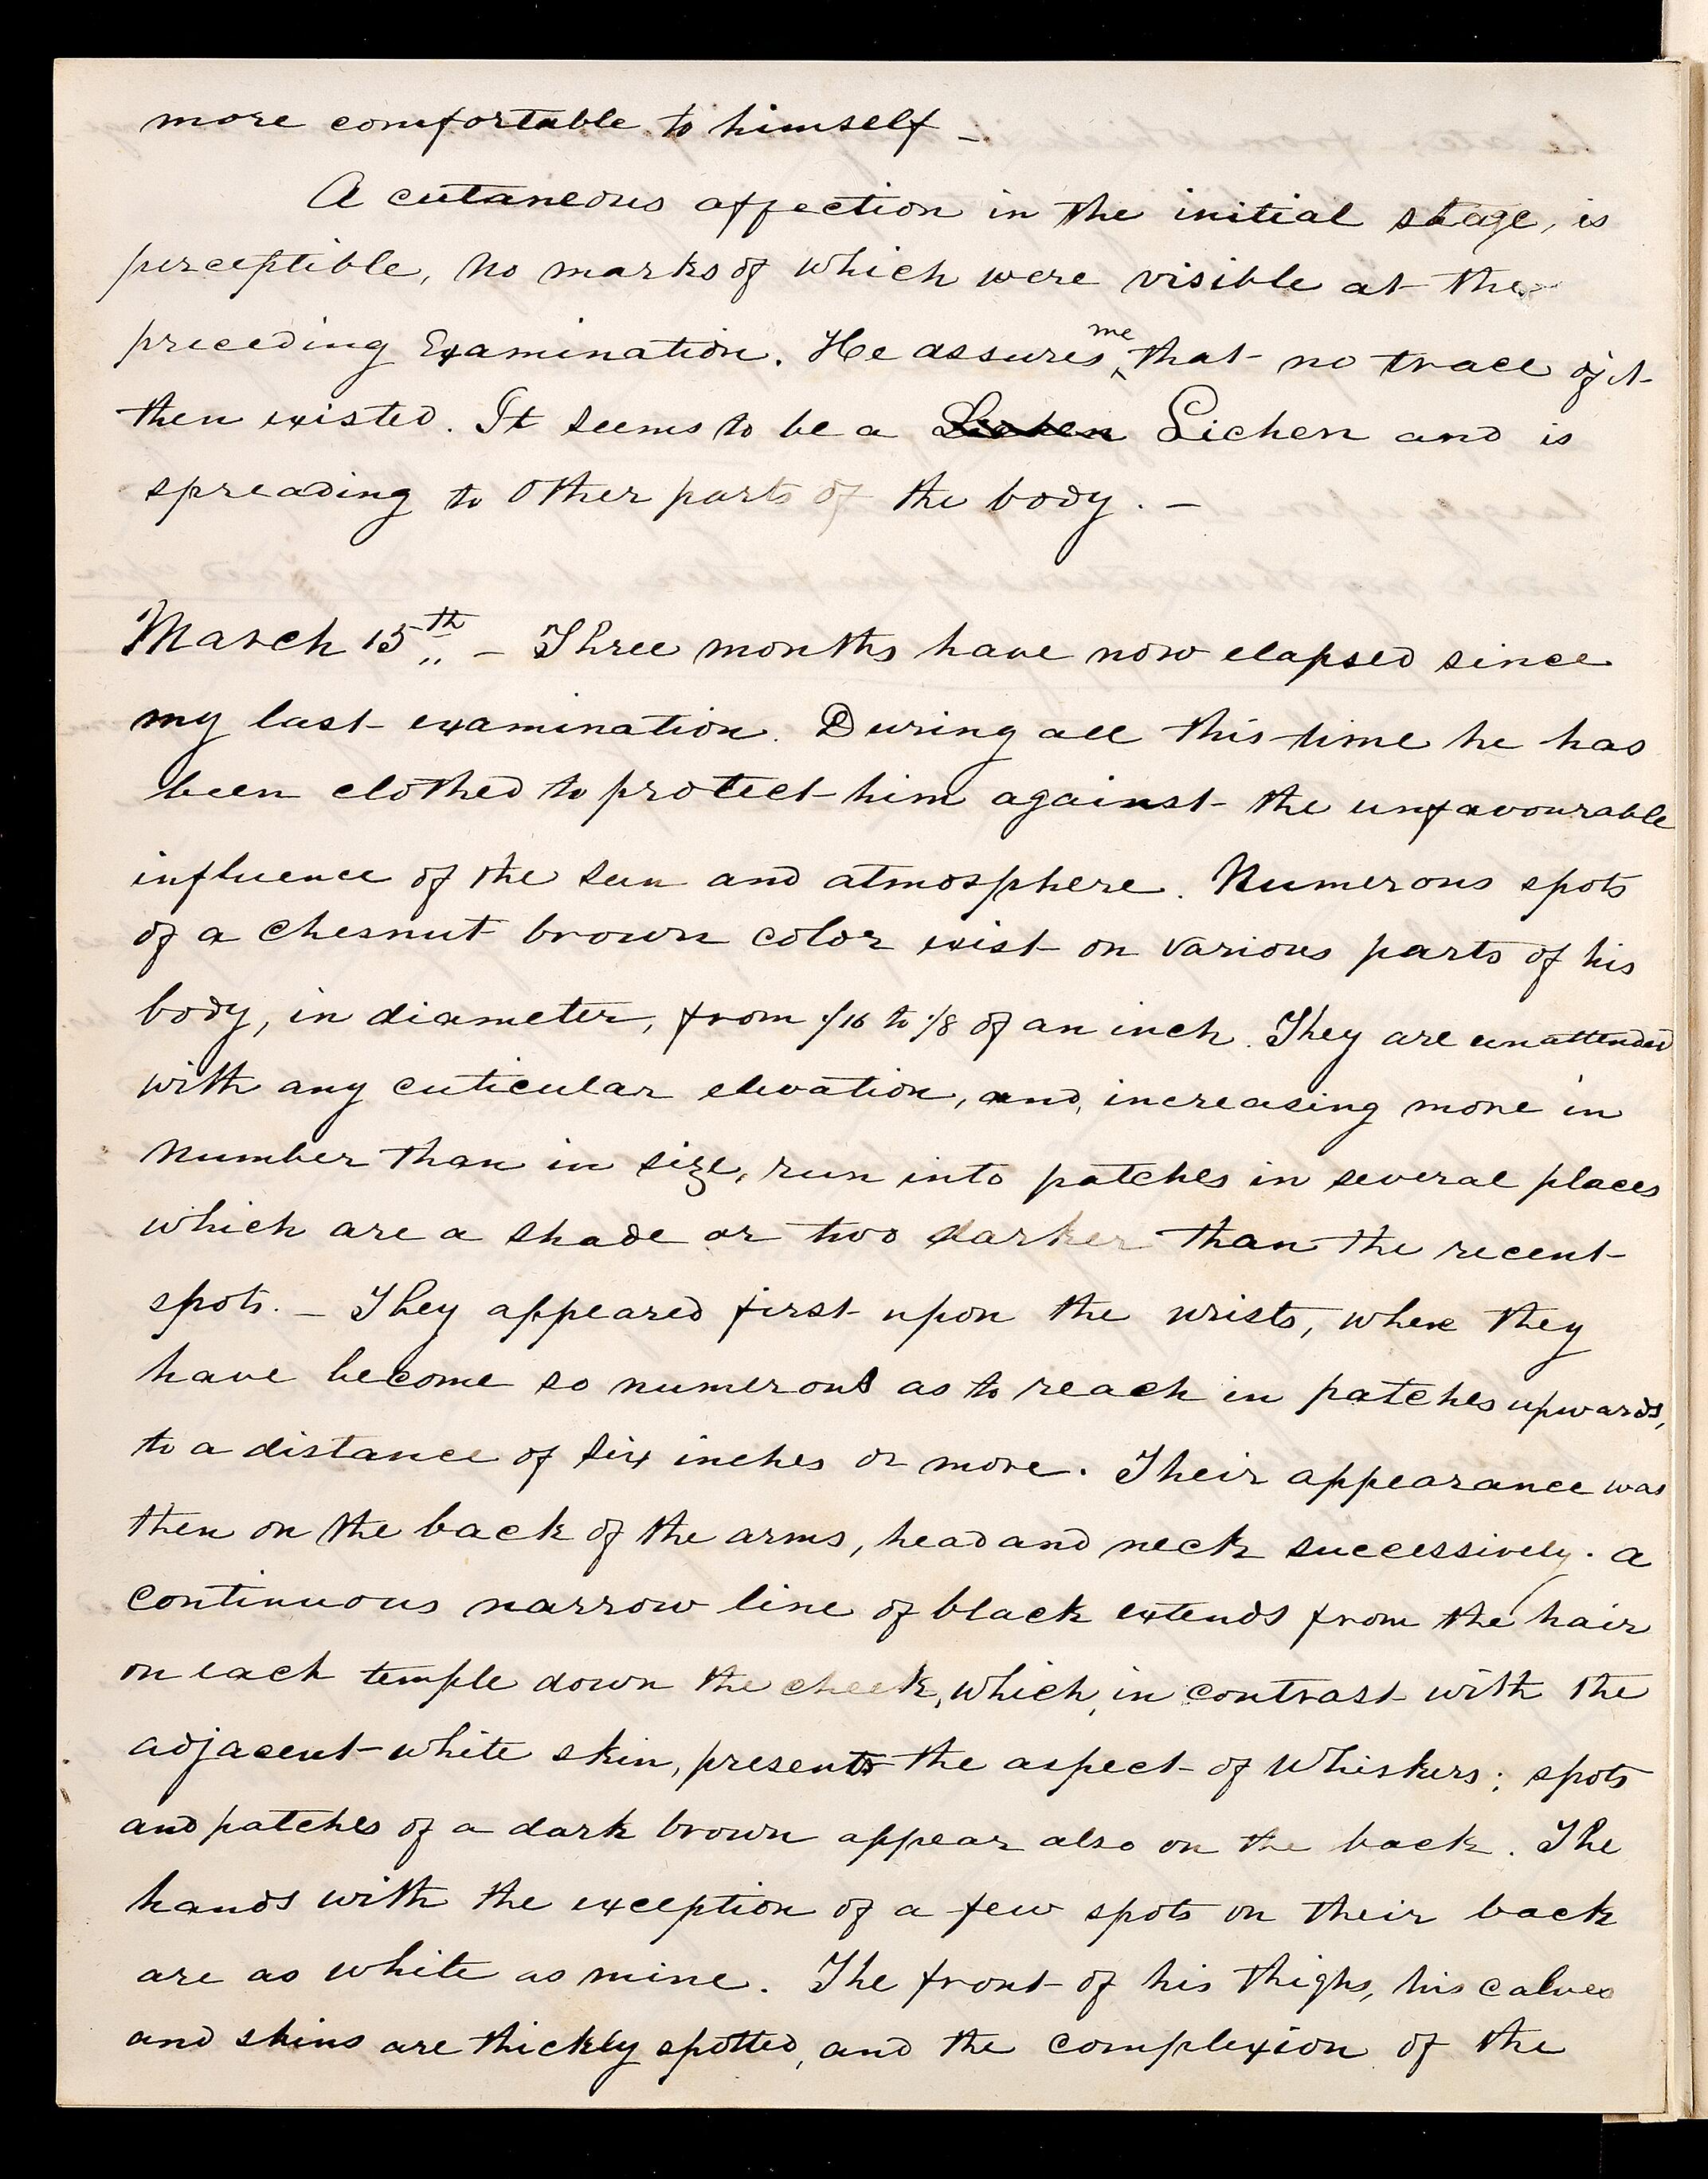 more comfortable to himself —
A cutaneous affection in the initial stage, is
perceptible, no marks of which were visible at the
preceding Examination. He assures me that no trace of it
then existed. It seems to be a Lichen Lichen and is
spreading to other parts of the body. —
March 15th — Three months have now elapsed since
my last examination. During all this time he has
been clothed to protect him against the unfavourable
influence of the sun and atmosphere. Numerous spots
of a chesnut brown color exist on various parts of his
body, in diameter, from 1/16 to 1/8 of an inch. They are unattended
with any cuticular elevation, and, increasing more in
number than in size, run into patches in several places
which are a shade or two darker than the recent
spots. — They appeared first upon the wrists, where they
have become so numerous as to reach in patches upwards,
to a distance of six inches or more. Their appearance was
then on the back of the arms, head and neck successively. a
continuous narrow line of black extends from the hair
on each temple down the cheek, which, in contrast with the
adjacent white skin, presents the aspect of whiskers; spots
and patches of a dark brown appear also on the back. The
hands with the exception of a few spots on their back
are as white as mine. The front of his thighs, his calves
and shins are thickly spotted, and the complexion of the